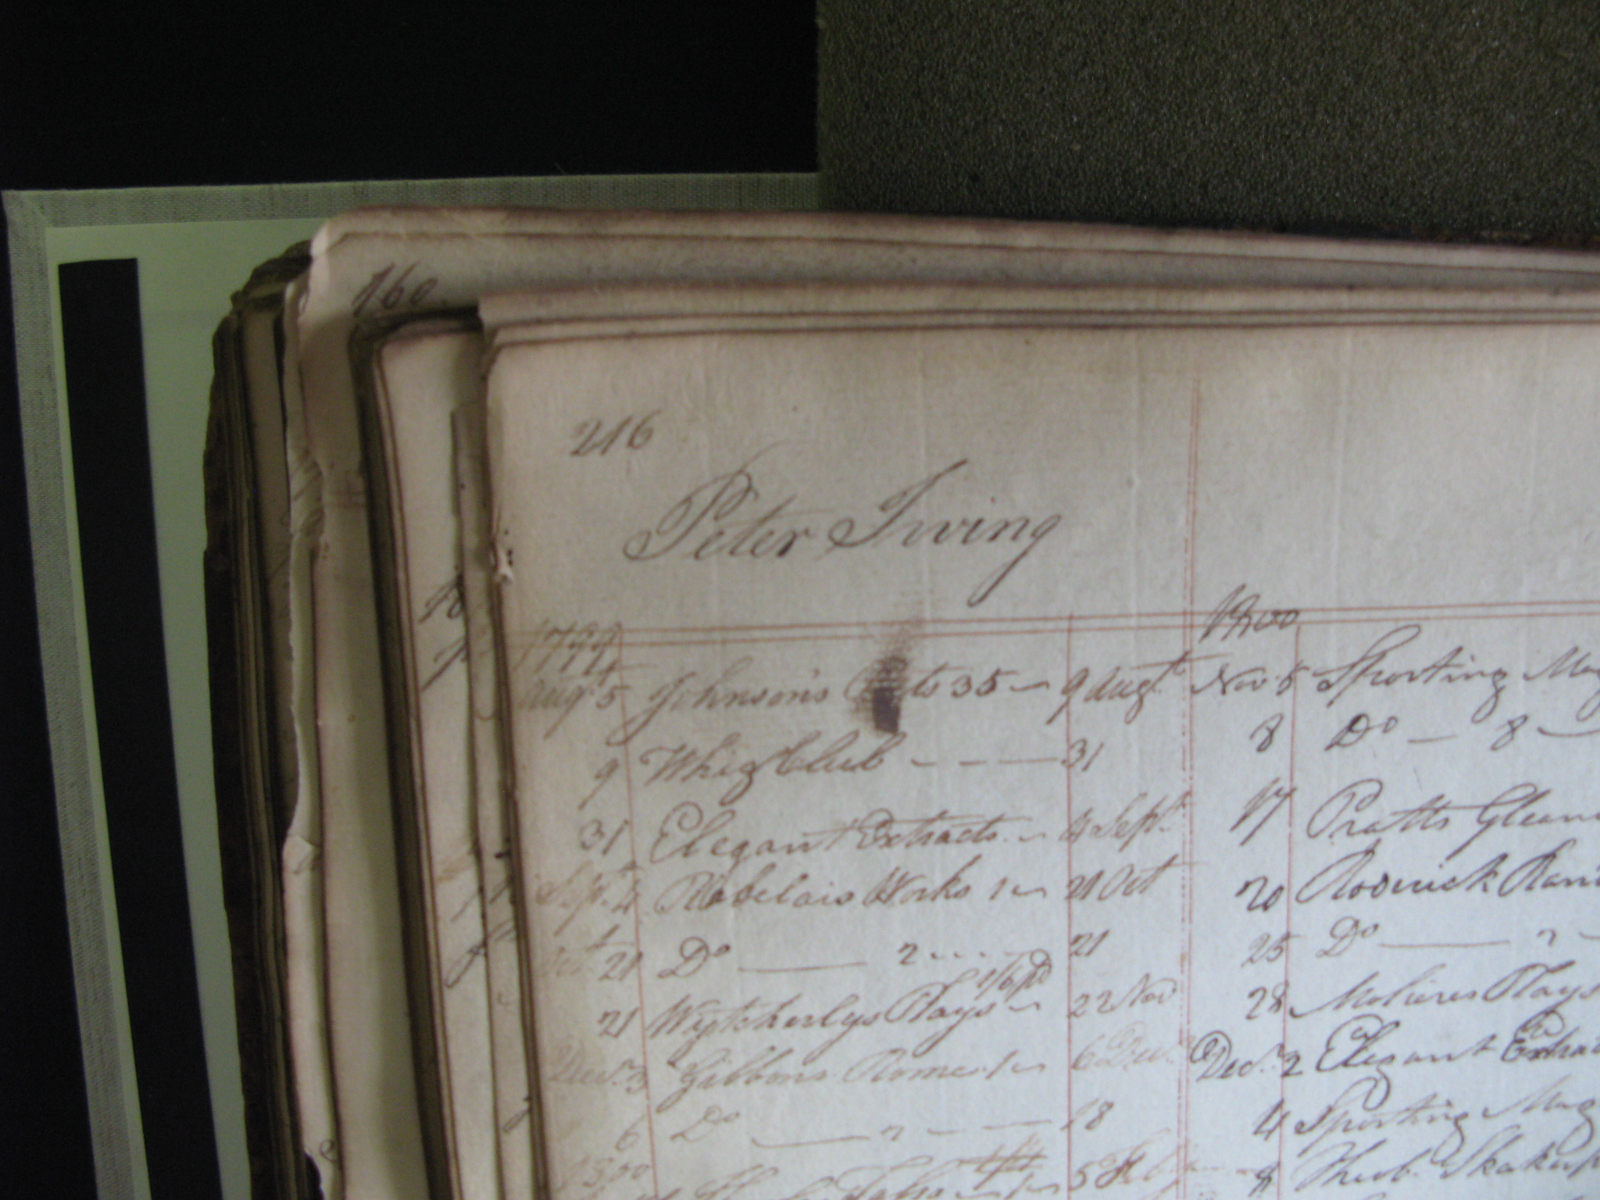 160
216
Peter Irving
1799
Augt 5 Johnson's ts 35 — 9 Augt
9 Whig Club - - - — 31
31 Elegant Extracts — 4 Sept
Sepr 4 Rabelais Works 1 — 21 Oct
21 Do — 2 .... 21
21 Wytcherlys Plays — 22 Nov
Decr 3 Gibbons Rome 1 — 6 Decr
6 Do — 2 — — 18
1800
1800
Nov 5 Sporting Mag
8 Do — 8 —
17 Pratts Glean
20 Roderick Ran
25 Do — 2 -
28 Molieres Plays
Decr 2 Elegant Extrac
4 Sporting Mag
8 Theob. Shakesp